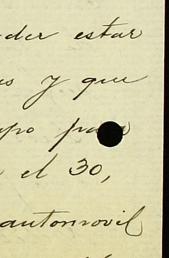 der estar
s y que
po para
el 30,
automovil